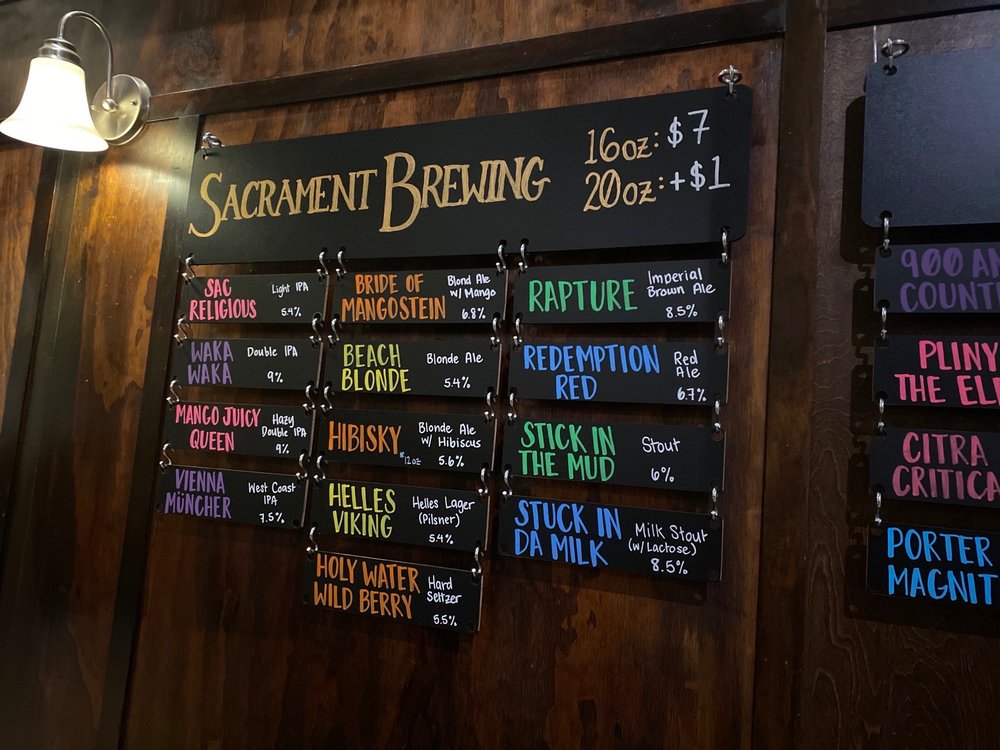 SACRAMENT BREWING
16oz: $7
20oz: +$1
SAC
RELIGIOUS
Light IPA
5.4%
WAKA
WAKA
Double IPA
9%
MANGO JUICY
QUEEN
Hazy
Double IPA
9%
VIENNA
MÜNCHER
West Coast
IPA
7.5%
BRIDE OF
MANGOSTEIN
Blond Ale
w/ Mango
6.8%
BEACH
BLONDE
Blonde Ale
5.4%
HIBISKY
12oz
Blonde Ale
w/ Hibiscus
5.6%
HELLES
VIKING
Helles Lager
(Pilsner)
5.4%
HOLY WATER
WILD BERRY
Hard
Seltzer
5.5%
RAPTURE
Imperial
Brown Ale
8.5%
REDEMPTION
RED
Red
Ale
6.7%
STICK IN
THE MUD
Stout
6%
STUCK IN
DA MILK
Milk Stout
(w/Lactose)
8.5%
900 AN
COUNT
PLINY
THE EL
CITRA
CRITICA
PORTER
MAGNIT